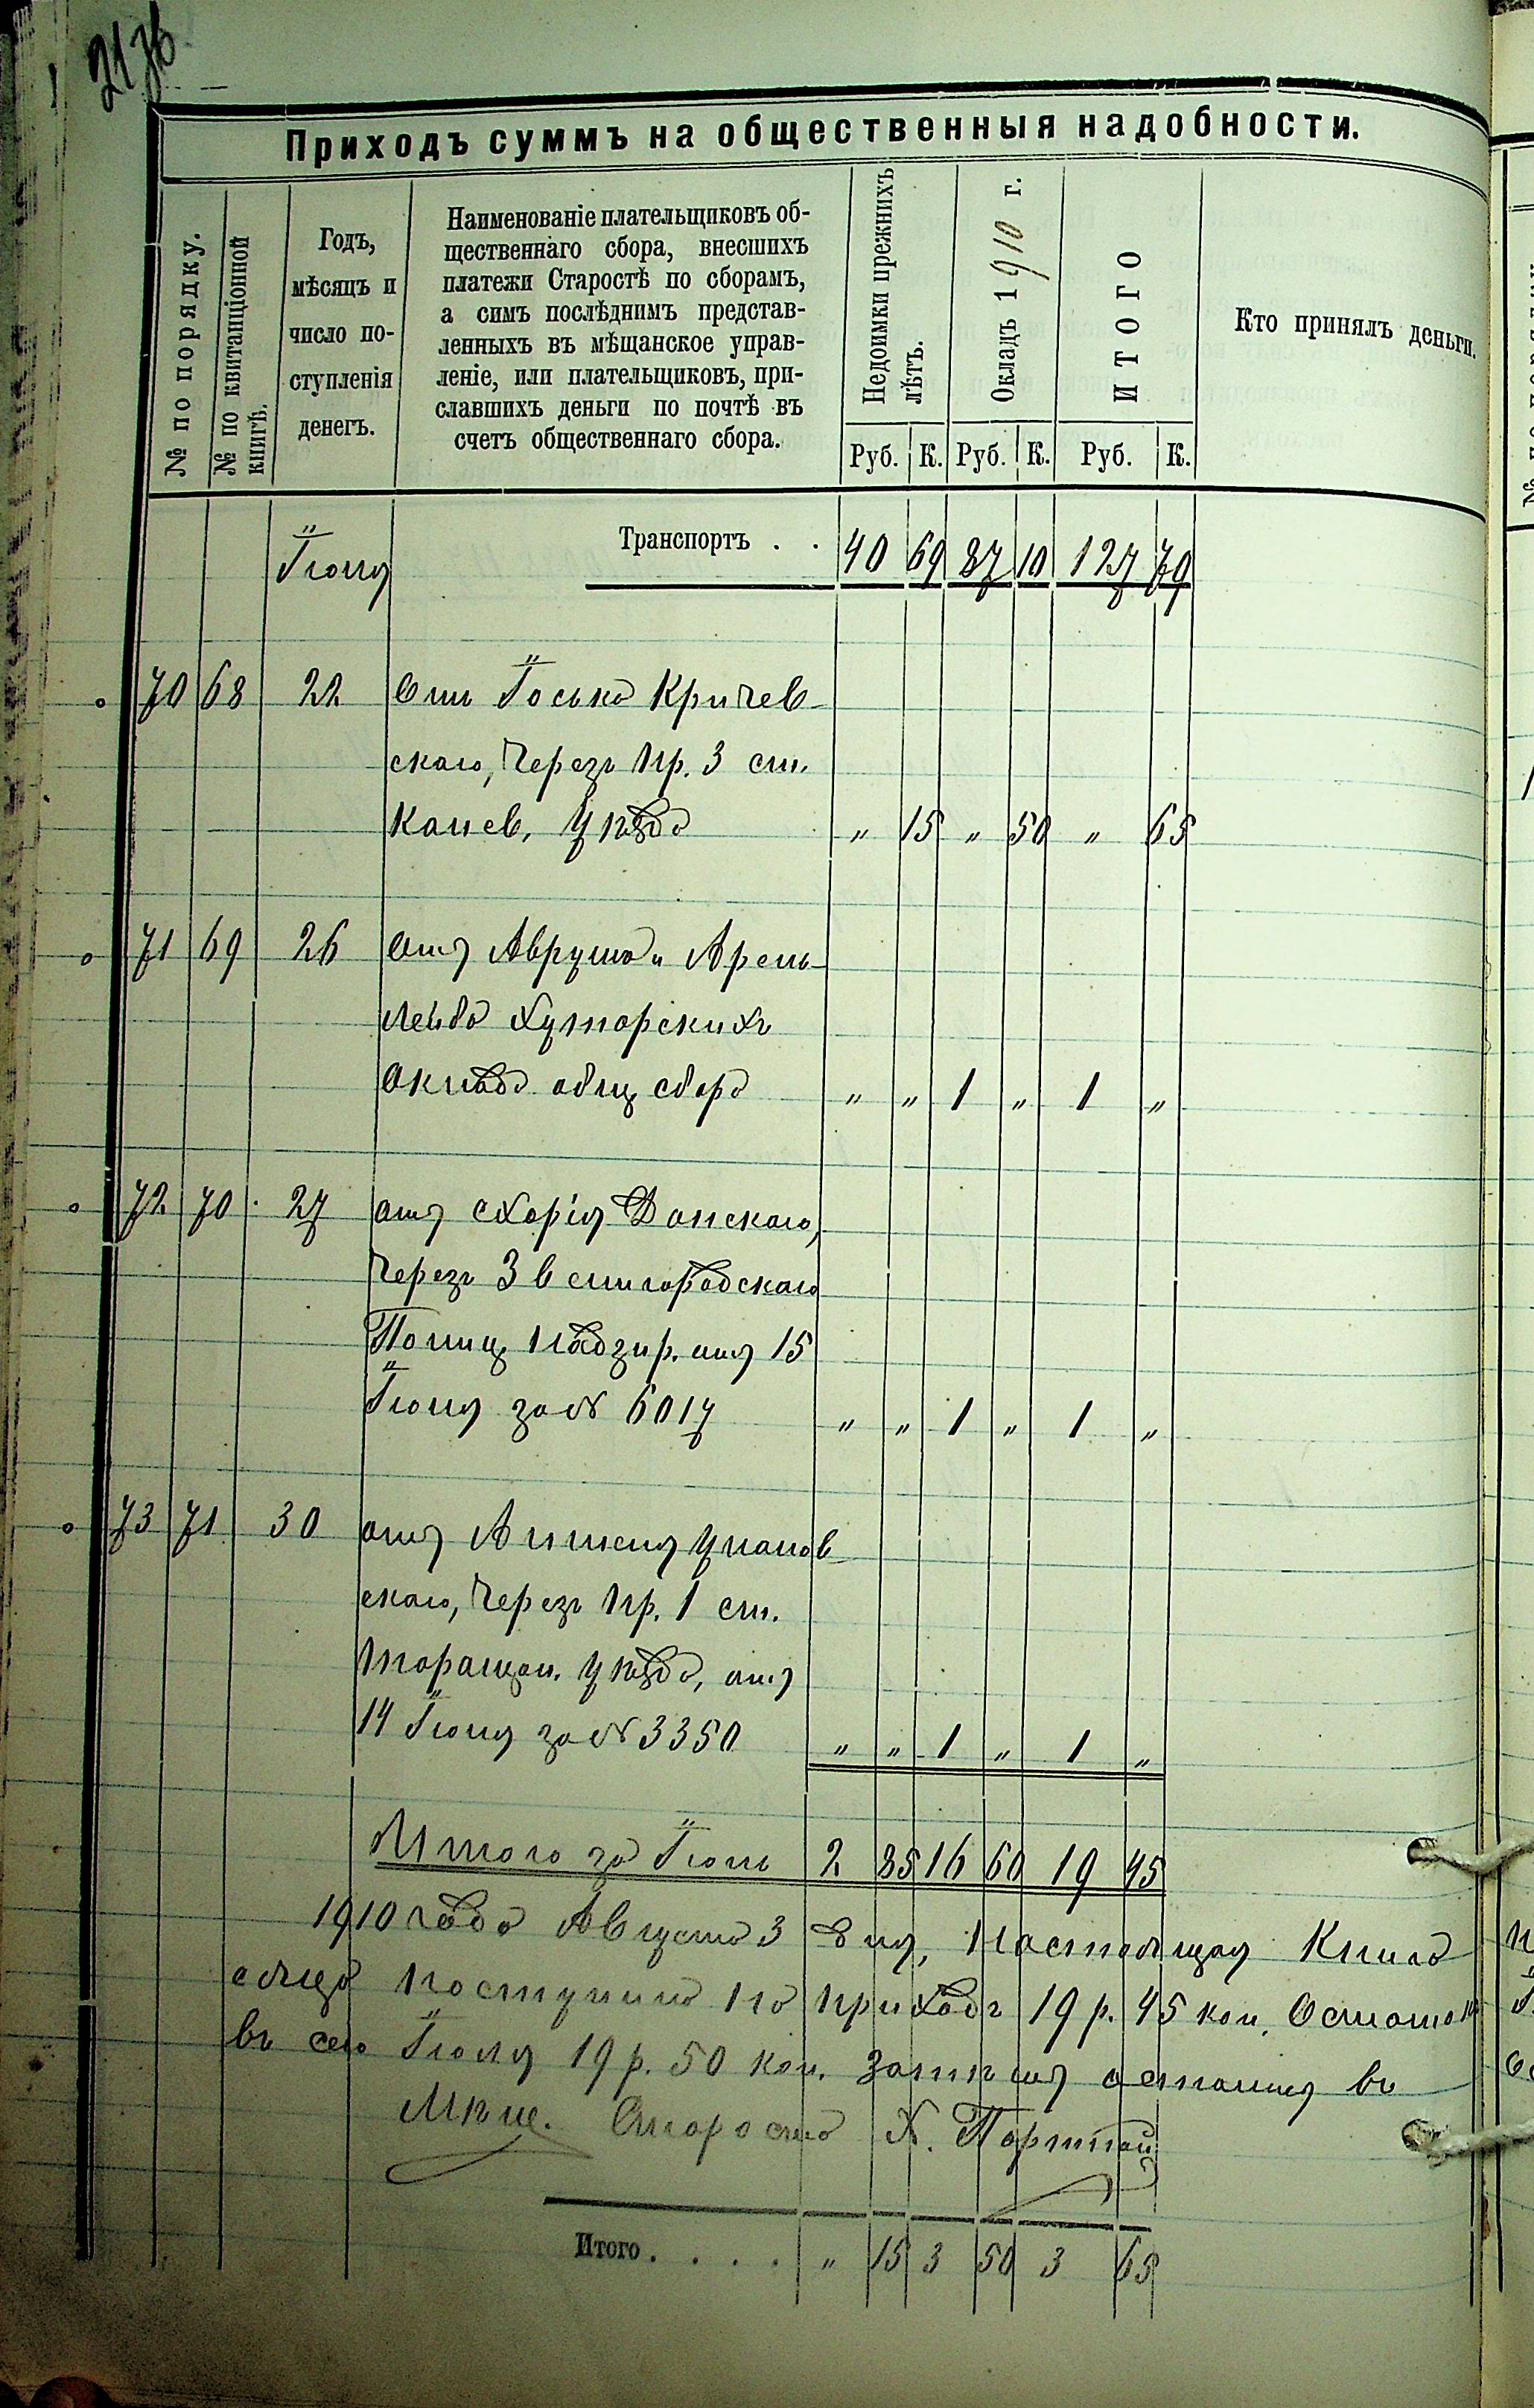 Приходъ суммъ на общественныя надобности.
№ по порядку.
№ по квитанціонной
книгѣ.
Годъ,
мѣсяцъ и
число по-
ступленія
денегъ.
Наименованіе плательщиковъ об-
щественнаго сбора, внесшихъ
платежи Старостѣ по сборамъ,
а симъ послѣднимъ представ-
ленныхъ въ мѣщанское управ-
леніе, или плательщиковъ, при-
славшихъ деньги по почтѣ въ
счетъ общественнаго сбора.
Недоимки прежнихъ
лѣтъ.
Окладъ 1910 г.
ИТОГО
Кто принялъ деньги.
Руб. К. Руб. К. Руб. К.
Іюля Транспортъ . . 40 69 87 10 127 79
70 68 22 Отъ Іоська Кричев-
скаго, Через Пр. 3 ст.
Канев, Уѣзда " 15 " 50 " 65
71 69 26 отъ Аврума и Арень
Лейба Хуторскихъ
Оклада общ сбора " " 1 " 1 "
72 70 27 отъ Донского,
Через Звенигородскаго
Полиц Надзир. отъ 15
Іюля за № 6017 " " 1 " 1 "
73 71 30 отъ
скаго, Через Пр. 1 ст.
Таращан. Уѣзда, отъ
14 Іюля за № 3350 " " 1 " 1 "
Итого за Іюль 2 85 16 60 19 45
1910 года Августа 3 дня, Настоящая Книга
поступило на приходъ 19 р. 45 коп. Остаток
Іюля 19 р. 50 коп. въ
Мѣщ. Староста Х. Портной
Итого . . . . " 15 3 50 3 65